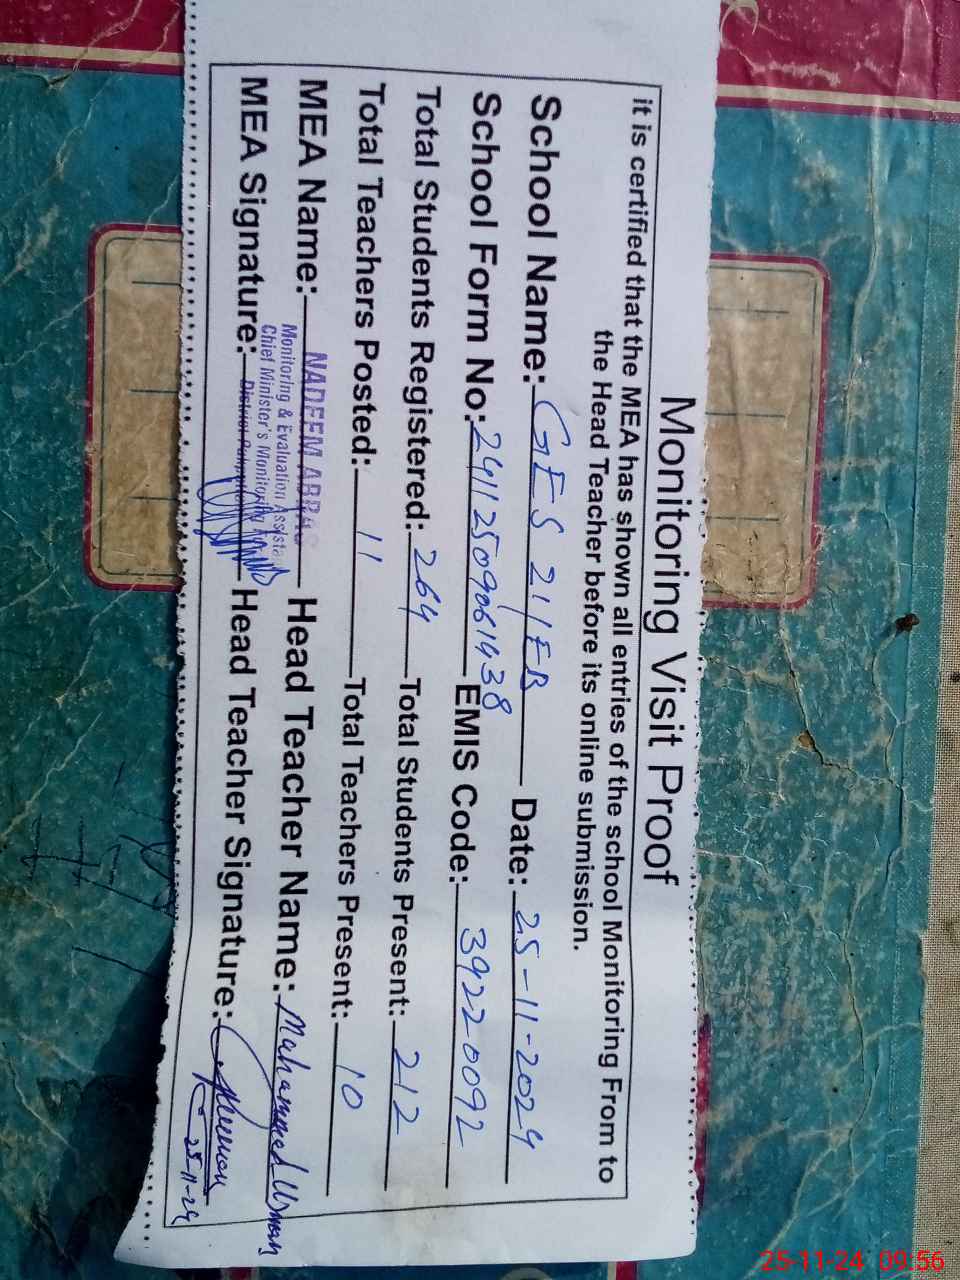 Monitoring Visit Proof
it is certified that the MEA has shown all entries of the school Monitoring From to
the Head Teacher before its online submission.
School Name: GES 21/EB Date: 25-11-2024
School Form No: 241125090061438 EMIS Code: 39220092
Total Students Registered: 264 Total Students Present: 212
Total Teachers Posted: 11 Total Teachers Present: 10
MEA Name: NADEEM ABBAS Head Teacher Name: Muhammad Usman
Monitoring & Evaluation Assista
Chief Minister's Monitoring
MEA Signature: District Head Teacher Signature:
25-11-24
25-11-24 09:56